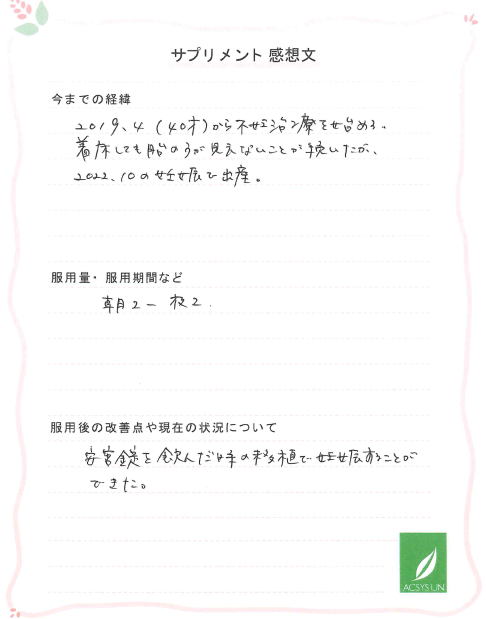 サプリメント 感想文
今までの経緯
2019、4 (40才)から不妊治療を始める、
着床しても胎のうが見えないことが続いたが、
2022、10の妊娠で出産。
服用量・服用期間など
朝2ー夜2.
服用後の改善点や現在の状況について
安宮錠を飲んだ時の移植で妊娠することが
できた。
ACSYSUN